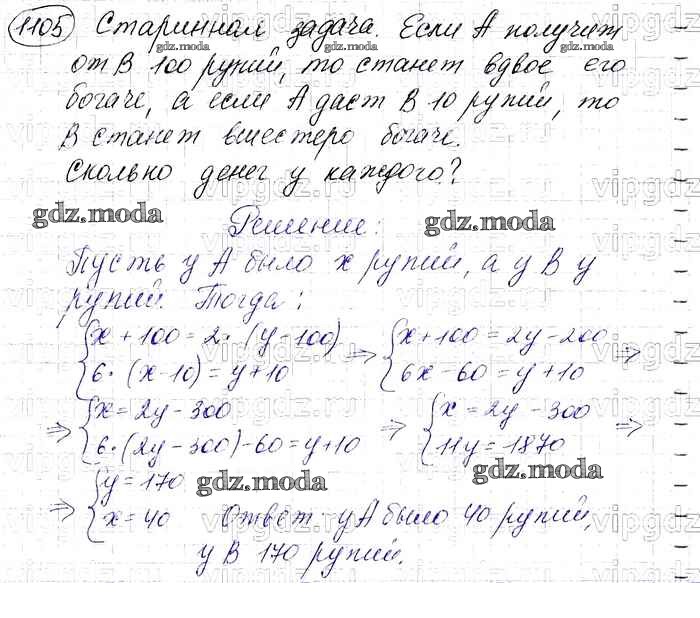 1105 Старинная задача. Если A получит
от B 100 рупий, то станет вдвое его
богаче, а если A даст B 10 рупий, то
B станет вшестеро богаче.
Сколько денег у каждого?
gdz.moda
Решение:
gdz.moda
Пусть у A было x рупий, а у B y
рупий. Тогда:
{x + 100 = 2 · (y - 100) => {x + 100 = 2y - 200 =>
{6 · (x - 10) = y + 10 {6x - 60 = y + 10
=> {x = 2y - 300 => {x = 2y - 300 =>
{6 · (2y - 300) - 60 = y + 10 {11y = 1870
=> {y = 170 gdz.moda gdz.moda
{x = 40 Ответ: у A было 40 рупий,
у B 170 рупий.